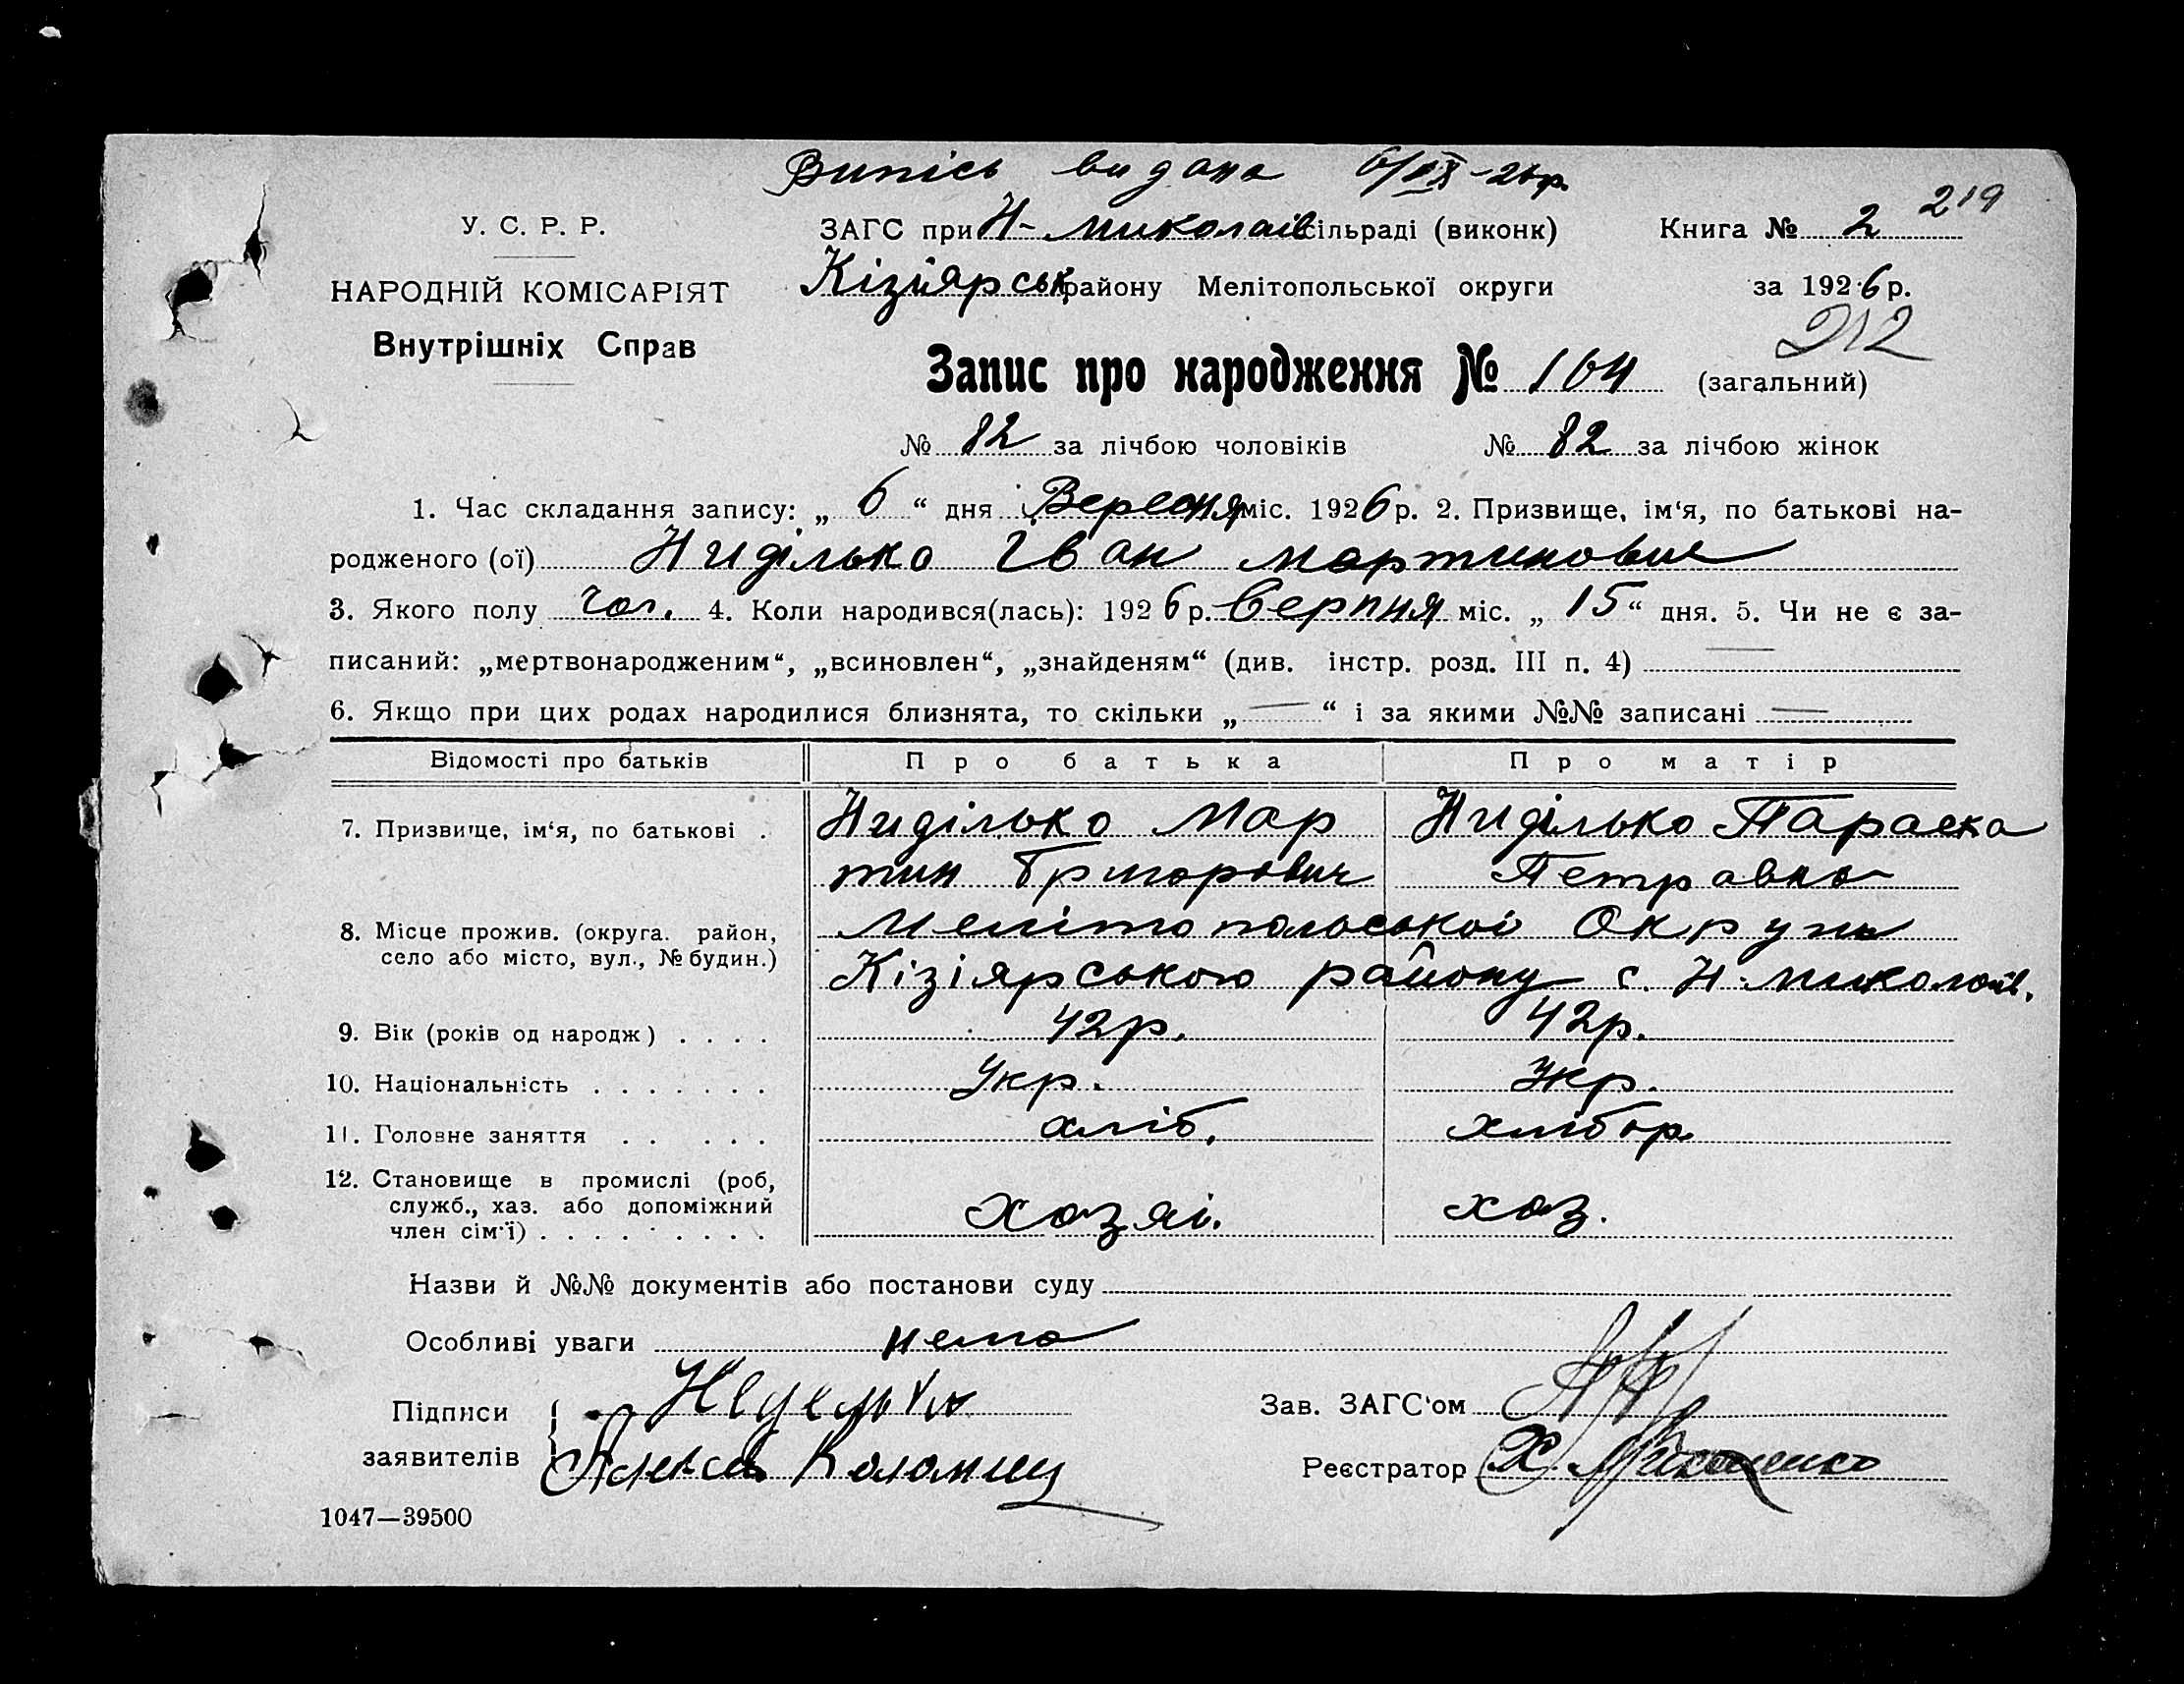 Випісь видана 6/IX-26р.
219
У. С. Р. Р.
ЗАГС при Н-Миколаїв сільраді (виконк)
Книга № 2
НАРОДНІЙ КОМІСАРІЯТ
Кізіярськ району Мелітопольської округи
за 1926 р.
Внутрішніх Справ
212
Запис про народження № 164 (загальний)
№ 82 за лічбою чоловіків № 82 за лічбою жінок
1. Час складання запису: „ 6 “ дня Вересня міс. 1926 р. 2. Призвище, ім‘я, по батькові на-
родженого (ої) Ниділько Іван Мартинович
3. Якого полу чол. 4. Коли народився(лась): 1926 р. Серпня міс. „ 15 “ дня. 5. Чи не є за-
писаний: „мертвонародженим“, „всиновлен“, „знайденям“ (див. інстр. розд. III п. 4) —
6. Якщо при цих родах народилися близнята, то скільки „ — “ і за якими №№ записані —
Відомості про батьків Про батька Про матір
7. Призвище, ім‘я, по батькові . Ниділько Мар Ниділько Параска
тин Григорович Петравна
8. Місце прожив. (округа. район, Мелітопольської Округи
село або місто, вул., № будин.) Кізіярського району с. Н-Миколаїв.
9. Вік (років од народж) . . . . 42р. 42р.
10. Національність . . . . . . . Укр. Укр.
11. Головне заняття . . . . . хліб. хлібор.
12. Становище в промислі (роб,
служб., хаз. або допоміжний хозяї. хоз.
член сім‘ї) . . . . . . . . .
Назви й №№ документів або постанови суду
Особливі уваги нема
Підписи Неделько Зав. ЗАГС‘ом
заявителів Коломиец Реєстратор
1047—39500